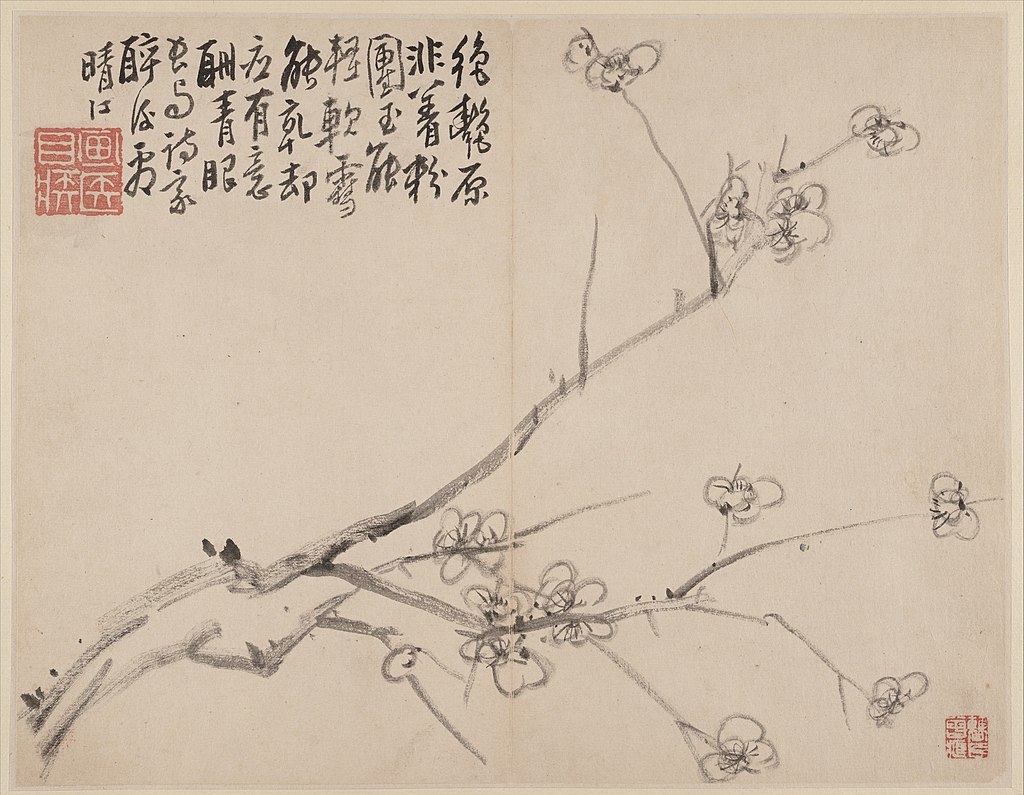 絕艷原
非着粉
團玉能
輕軟雪
能乾却
应有意
酬青眼
長与詩家
醉后看
晴江